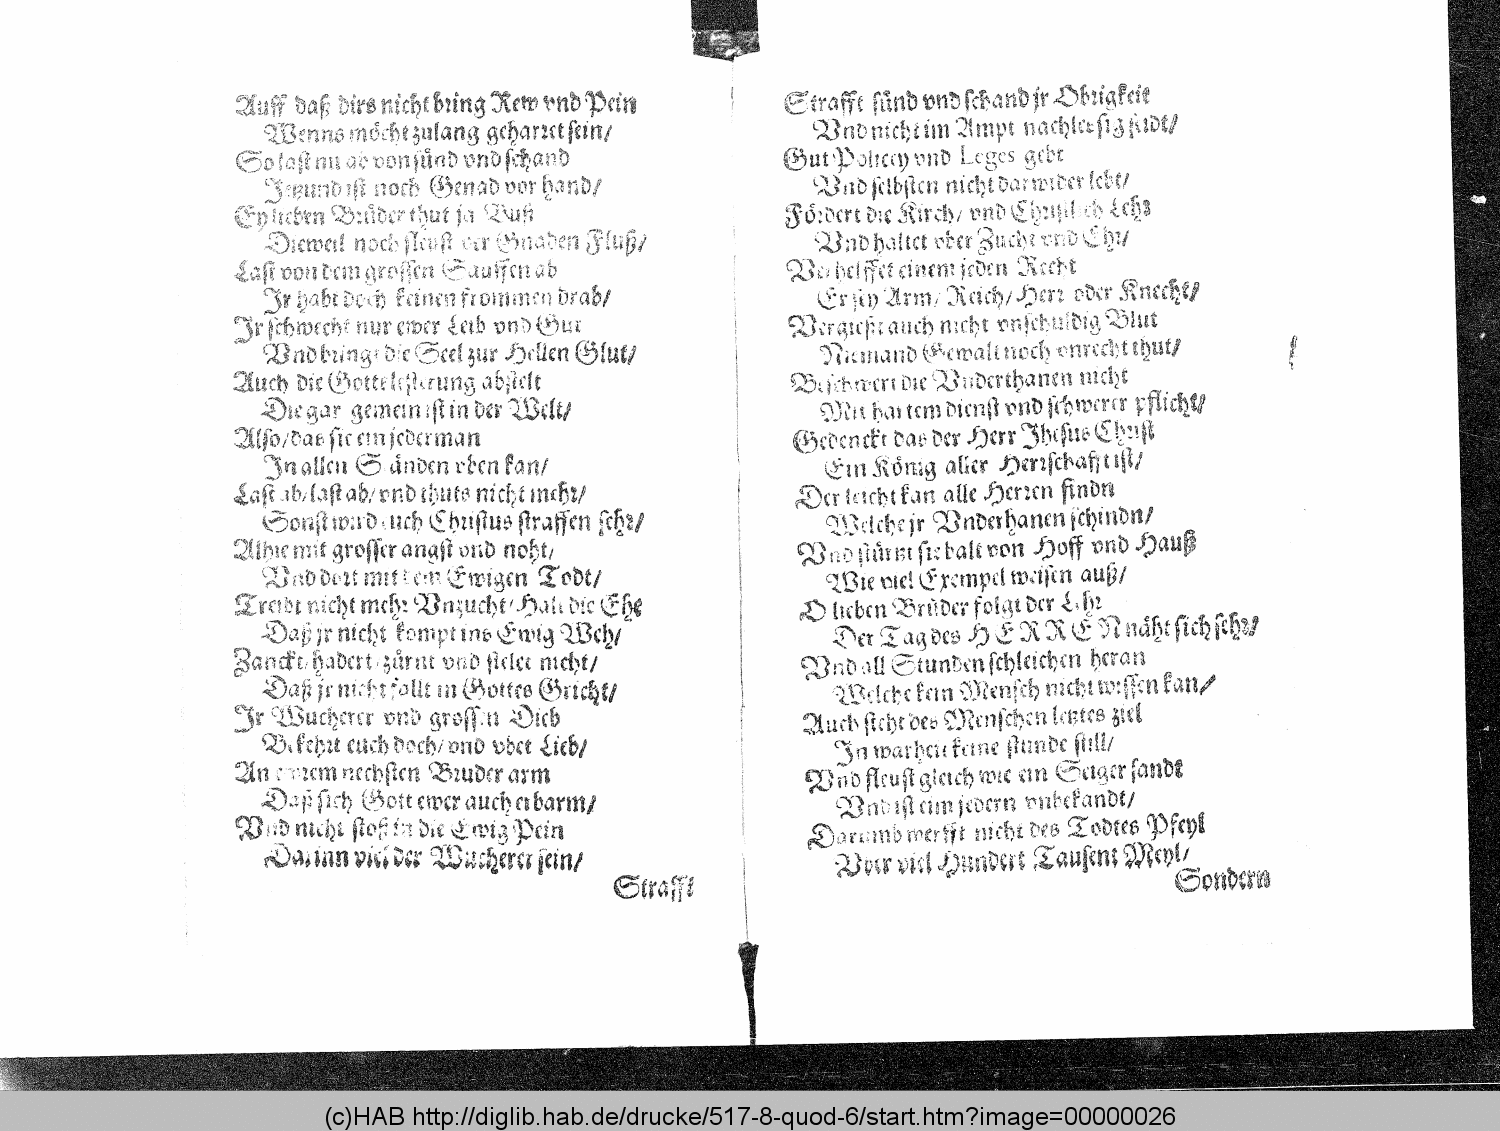 Auff daß dirs nicht bring Rew vnd Pein
Wenns möcht zulang geharret sein/
So last nu ab von sünd vnd schand
Jetzund ist noch Genad vorhand/
Ey lieben Brüder thut ja Buß
Dieweil noch fleust der Gnaden Fluß/
Last von dem grossen Sauffen ab
Jr habt doch keinen frommen drab/
Jr schwecht nur ewer Leib vnd Gut
Vnd bringt die Seel zur Hellen Glut/
Auch die Gotteslesterung abstelt
Die gar gemein ist in der Welt/
Also/ das sie ein jederman
Jn allen Ständen vben kan/
Last ab/ last ab/ vnd thuts nicht mehr/
Sonst wird euch Christus straffen sehr/
Alhie mit grosser angst vnd noht/
Vnd dort mit dem Ewigen Todt/
Treibt nicht mehr Vnzucht/ Halt die Ehe
Daß jr nicht kompt ins Ewig Weh/
Zanckt/ hadert/ zürnt vnd stelet nicht/
Daß jr nicht follt in Gottes Gricht/
Jr Wucherer vnd grossen Dieb
Bekehrt euch doch/ vnd vbet Lieb/
An ewrem nechsten Bruder arm
Daß sich Gott ewer auch erbarm/
Vnd nicht stoß in die Ewig Pein
Darinn viel der Wucherer sein/
Strafft
Strafft sünd vnd schand jr Obrigkeit
Vnd nicht im Ampt nachlessig seidt/
Gut Policey vnd Leges gebt
Vnd selbsten nicht darwider lebt/
Fördert die Kirch/ vnd Christlich Lehr
Vnd haltet vber Zucht vnd Ehr/
Verhelffet einem jeden Recht
Er sey Arm/ Reich/ Herr oder Knecht/
Vergiest auch nicht vnschuldig Blut
Niemand Gewalt noch vnrecht thut/
Beschwert die Vnderthanen nicht
Mit hartem dienst vnd schwerer pflicht/
Gedenckt das der Herr Jhesus Christ
Ein König aller Herrschafft ist/
Der leicht kan alle Herren findn
Welche jr Vnderhanen schindn/
Vnd stürtzt sie balt von Hoff vnd Hauß
Wie viel Exempel weisen auß/
O lieben Brüder folgt der Lehr
Der Tag des HERREN näht sich sehr/
Vnd all Stunden schleichen heran
Welche kein Mensch nicht wissen kan/
Auch steht des Menschen letztes ziel
Jn warheit keine stunde still/
Vnd fleust gleich wie ein Seiger sandt
Vnd ist eim jedern vnbekandt/
Darumb werfft nicht des Todtes Pfeyl
Vber viel Hundert Tausent Meyl/
Sondern
(c)HAB http://diglib.hab.de/drucke/517-8-quod-6/start.htm?image=00000026